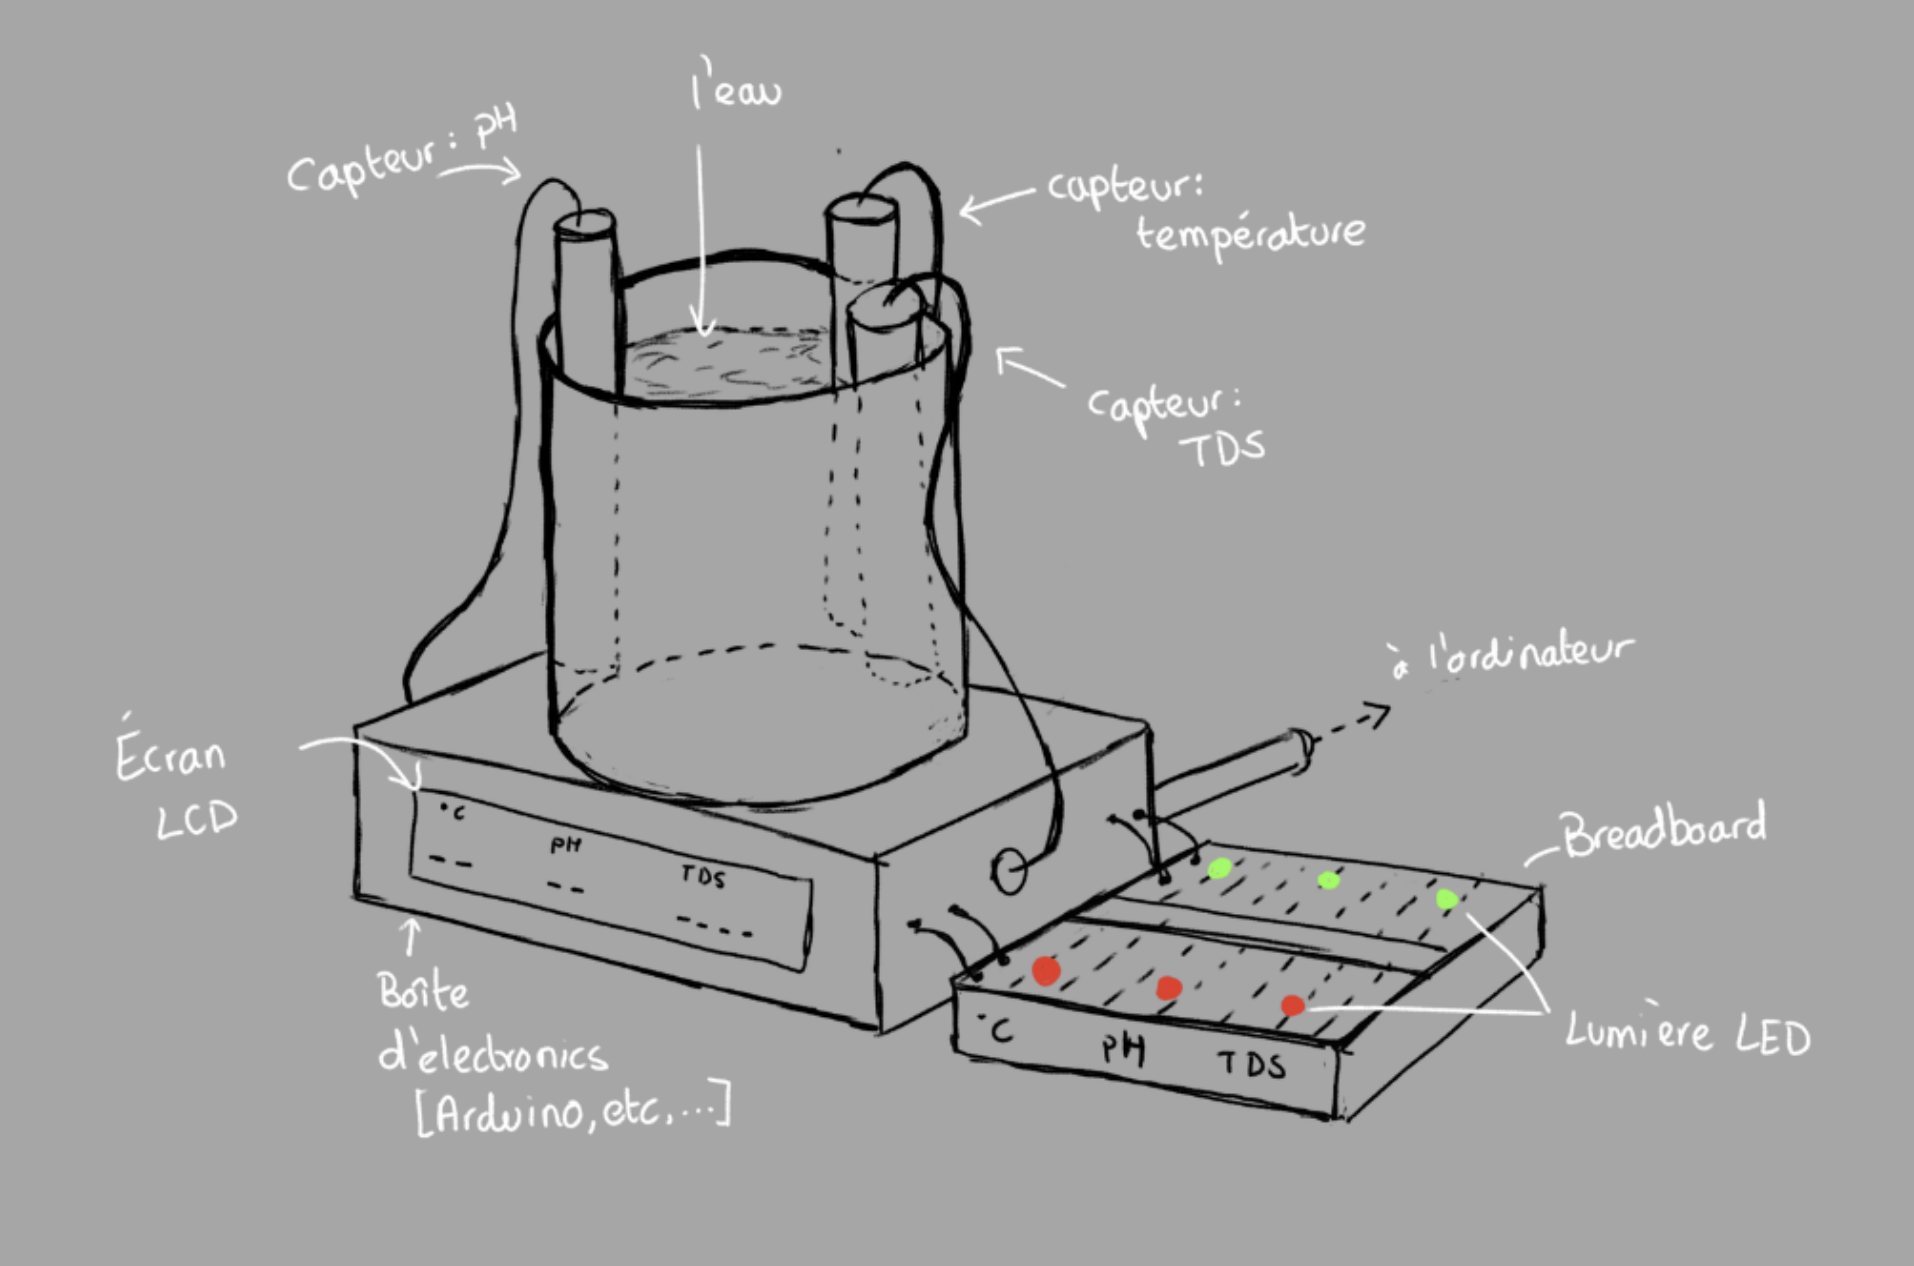 l'eau
Capteur: pH
capteur:
température
capteur:
TDS
à l'ordinateur
Écran
LCD
°C
pH
TDS
--
--
----
Breadboard
Boîte
d'electronics
[Arduino, etc,...]
Lumière LED
°C PH TDS